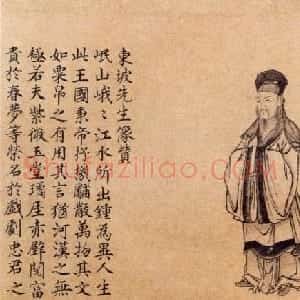 東坡先生像贊
岷山峩〻江水所出鍾為異人生
此王國秉帝杼機黼黻萬物其文
如粟帛之有用其言猶河漢之無
極若夫紫微玉堂瓊厓赤壁閱富
貴於春夢等榮名於戲劇忠君之
Shufaziliao.COM